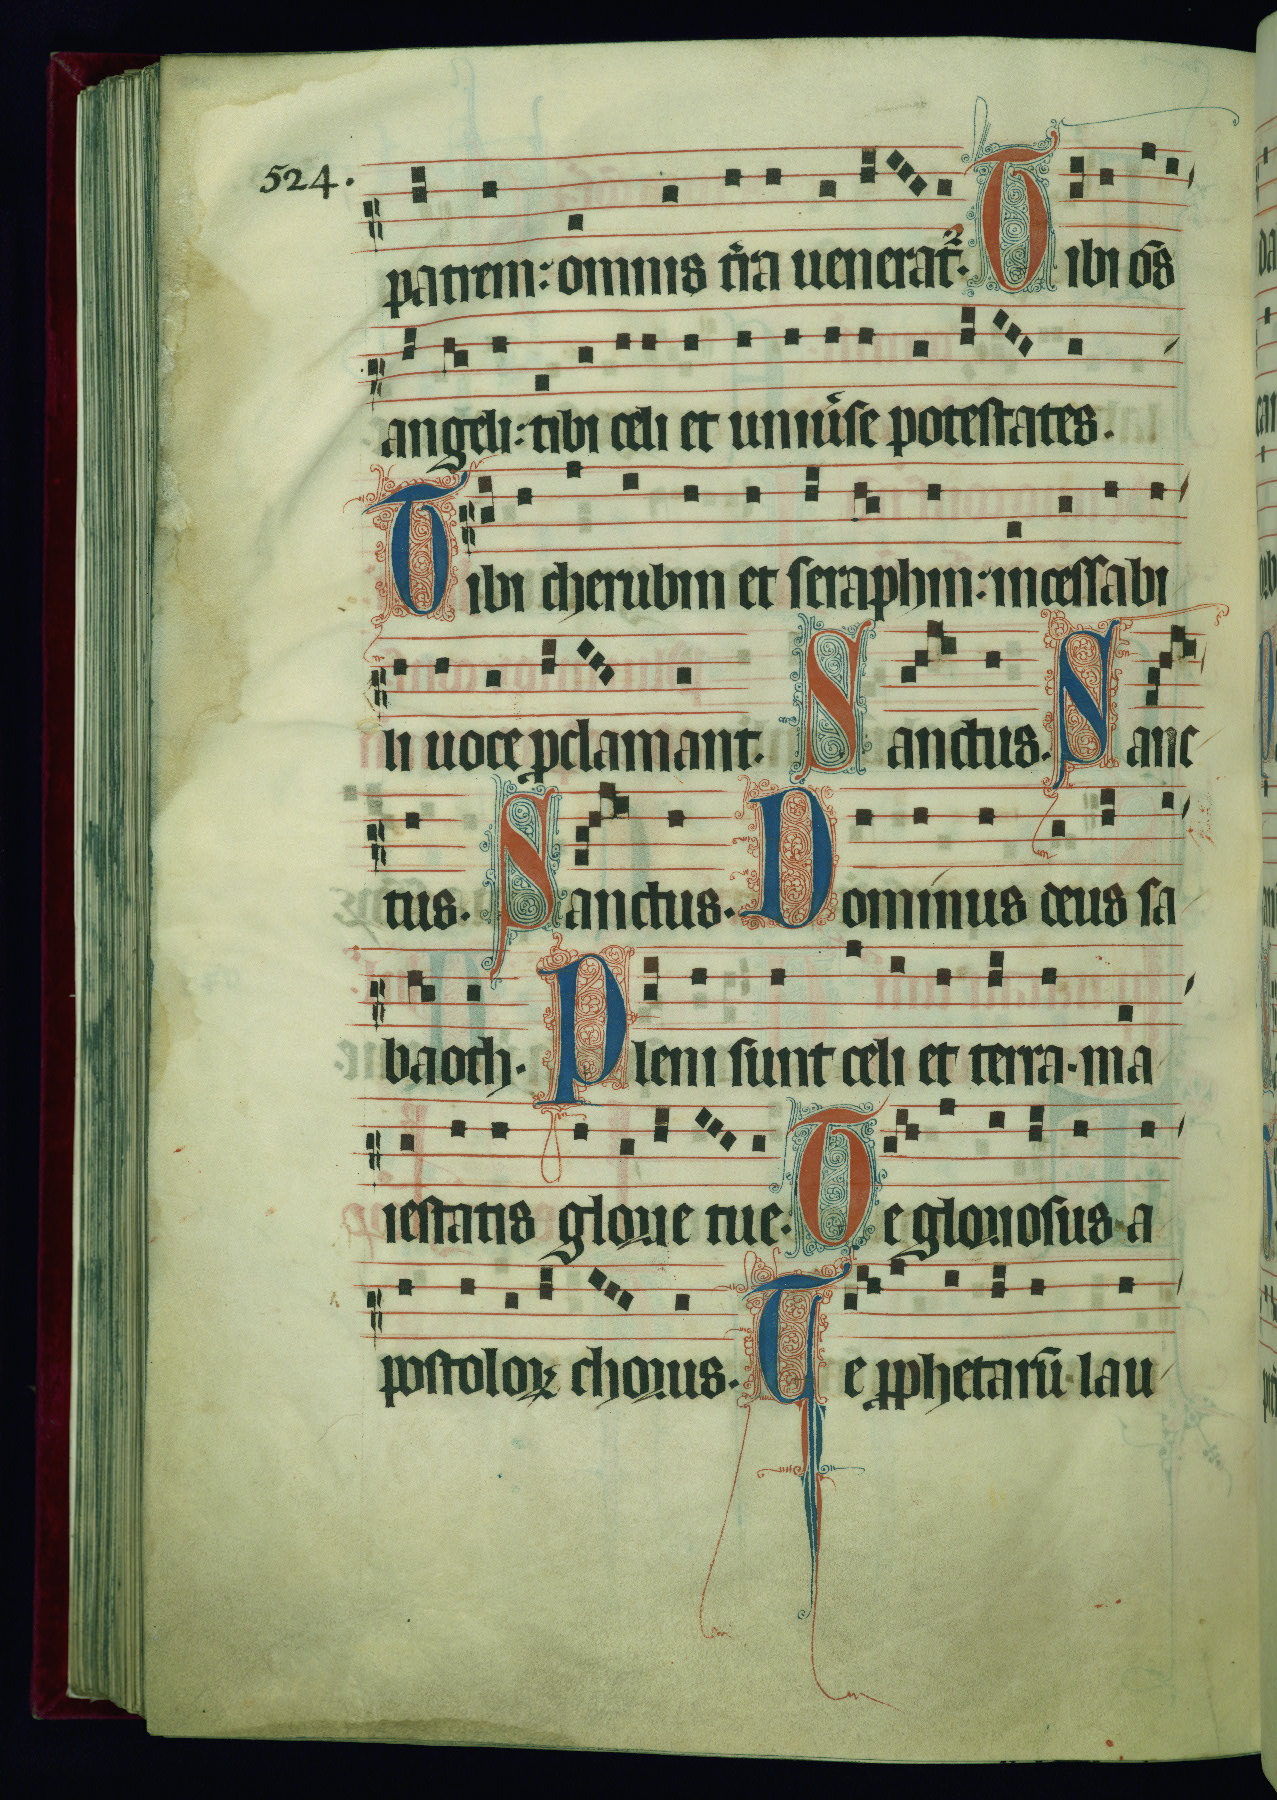 524.
patrem: omnis t̄ra uenerat᷑. Tibi oēs
angeli: tibi celi et uniu̾se potestates.
Tibi cherubin et seraphin: incessabi
li uoce ꝓclamant. Sanctus. Sanc
tus. Sanctus. Dominus deus sa
baoth. Pleni sunt celi et terra. ma
iestatis glorie tue. Te gloriosus a
postoloꝝ chorus. Te ꝓphetarū lau